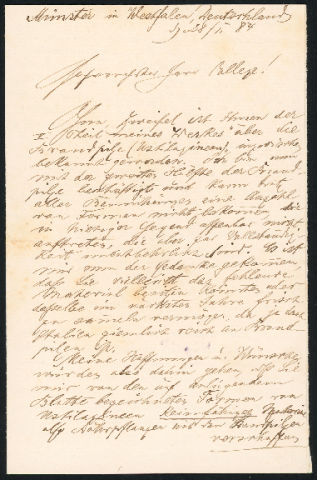 Münster in Westfalen, Deutschland,
28/5 84
Hochverehrter Herr College!
Ohne Zweifel ist Ihnen der
I Theil meines Werkes über die
Brandpilze (Ustilagineen) inzwischen
bekannt geworden. Ich bin nun
mit der zweiten Hälfte der Brand-
pilze beschäftigt und kann trotz
aller Bemühungen eine Anzahl
von Formen nicht bekommen, die
in hiesiger Gegend offenbar nicht
auftreten, die aber zur Vollständig-
keit unentbehrlich sind. So ist
mir nun der Gedanke gekommen
daß Sie vielleicht das fehlende
Material besitzen könnten oder
dasselbe im nächsten Jahre frisch
zu sammeln vermögen, da ja dort
Italien ziemlich reich an Brand-
pilzen ist.
Meine Hoffnungen u. Wünsche
würden also dahin gehen, daß Sie
mir von den auf beiliegendem
Blatte bezeichneten Formen von
Ustilagineen keimfähiges Material
also Nährpflanzen mit den Brandpilzen
verschaffen